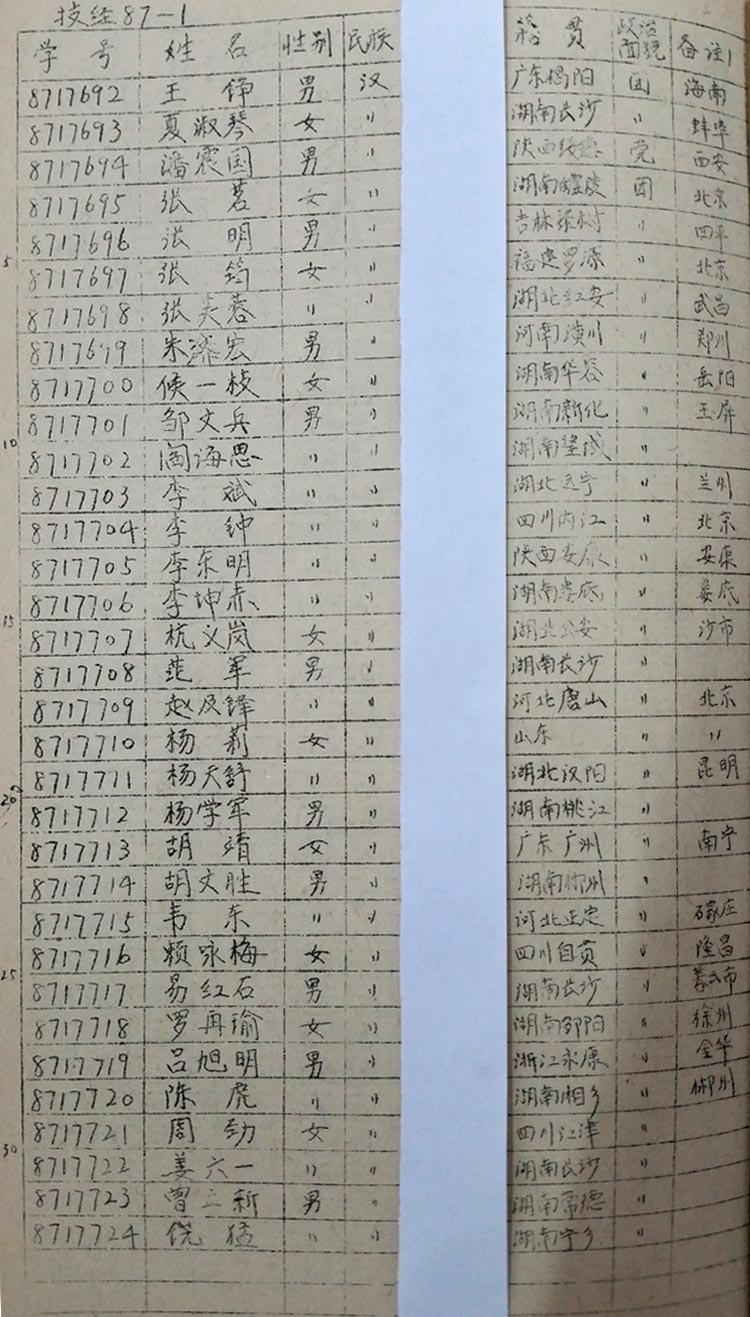 技经87-1
学号 姓名 性别 民族 籍贯 政治面貌 备注
8717692 王铮 男 汉 广东揭阳 团 海南
8717693 夏淑琴 女 〃 湖南长沙 〃 蚌埠
8717694 潘震国 男 〃 陕西绥德 党 西安
8717695 张茗 女 〃 湖南醴陵 团 北京
5 8717696 张明 男 〃 吉林梨树 〃 四平
8717697 张筠 女 〃 福建罗源 〃 北京
8717698 张芙蓉 〃 〃 湖北红安 〃 武昌
8717699 朱添宏 男 〃 河南潢川 〃 郑州
8717700 侯一枝 女 〃 湖南华容 〃 岳阳
10 8717701 邹文兵 男 〃 湖南新化 〃 玉屏
8717702 阎海思 〃 〃 湖南望城 〃
8717703 李斌 〃 〃 湖北远宁 〃 兰州
8717704 李绅 〃 〃 四川内江 〃 北京
8717705 李东明 〃 〃 陕西安康 〃 安康
15 8717706 李坤赤 〃 〃 湖南娄底 〃 娄底
8717707 杭义岚 女 〃 湖北公安 〃 沙市
8717708 范军 男 〃 湖南长沙 〃
8717709 赵及锋 〃 〃 河北唐山 〃 北京
8717710 杨莉 女 〃 山东 〃 〃
20 8717711 杨天舒 〃 〃 湖北汉阳 〃 昆明
8717712 杨学军 男 〃 湖南桃江 〃
8717713 胡靖 女 〃 广东广州 〃 南宁
8717714 胡文胜 男 〃 湖南郴州 〃
8717715 韦东 〃 〃 河北正定 〃 石家庄
25 8717716 赖咏梅 女 〃 四川自贡 〃 隆昌
8717717 易红石 男 〃 湖南长沙 〃
8717718 罗再瑜 女 〃 湖南邵阳 〃 徐州
8717719 吕旭明 男 〃 浙江永康 〃 金华
8717720 陈虎 〃 〃 湖南湘乡 〃 郴州
30 8717721 周劲 女 〃 四川江津 〃
8717722 姜六一 〃 〃 湖南长沙 〃
8717723 曾立新 男 〃 湖南常德 〃
8717724 饶猛 〃 〃 湖南宁乡 〃